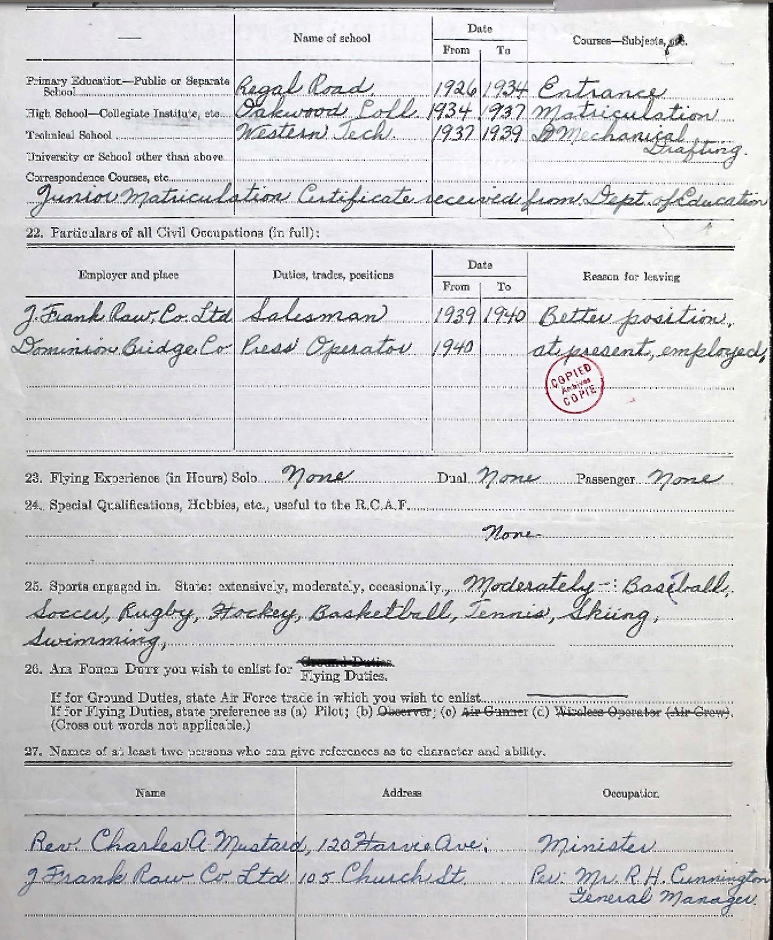 Name of school Date Courses—Subjects, etc.
From To
Primary Education—Public or Separate
School Regal Road 1926 1934 Entrance
High School—Collegiate Institute, etc. Oakwood Coll. 1934 1937 Matriculation
Technical School Western Tech. 1937 1939 Mechanical
Drafting.
University or School other than above
Correspondence Courses, etc.
Junior Matriculation Certificate received from Dept. of Education
22. Particulars of all Civil Occupations (in full):
Employer and place Duties, trades, positions Date Reason for leaving
From To
J. Frank Raw, Co. Ltd Salesman 1939 1940 Better position.
Dominion Bridge Co Press Operator 1940 at present, employed.
COPIED
Archives
COPIE
23. Flying Experience (in Hours) Solo None Dual None Passenger None
24. Special Qualifications, Hobbies, etc., useful to the R.C.A.F.
None
25. Sports engaged in. State: extensively, moderately, occasionally, Moderately -: Baseball,
Soccer, Rugby, Hockey, Basketball, Tennis, Skiing,
Swimming,
26. Air Force Duty you wish to enlist for Ground Duties.
Flying Duties.
If for Ground Duties, state Air Force trade in which you wish to enlist
If for Flying Duties, state preference as (a) Pilot; (b) Observer; (c) Air Gunner (c) Wireless Operator (Air Crew).
(Cross out words not applicable.)
27. Names of at least two persons who can give references as to character and ability.
Name Address Occupation
Rev. Charles A Mustard, 120 Harvie Ave. Minister
J Frank Raw Co Ltd 105 Church St. Per. Mr. R H. Cunnington
General Manager.